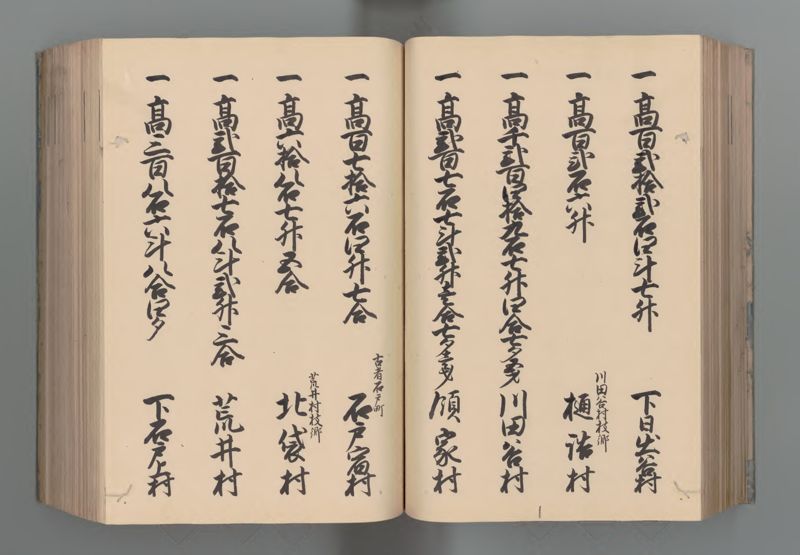 一 高百弐拾弐石四斗七升 下日出谷村
一 高百弐石六升 川田谷村枝郷 樋詰村
一 高千弐百四拾九石七升四合七夕 川田谷村
一 高弐百七石七斗弐升壱合七夕 領家村
一 高百七拾六石四升七合 古者石戸町 石戸宿村
一 高六拾八石七升五合 荒井村枝郷 北袋村
一 高弐百拾七石八斗弐升三合 荒井村
一 高三百八石六斗八合四夕 下石戸上村